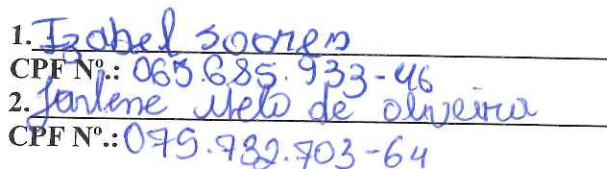 1. Izabel Soares
CPF Nº.: 065.685.933-46
2. Jarlene Melo de Oliveira
CPF Nº.: 079.732.703-64